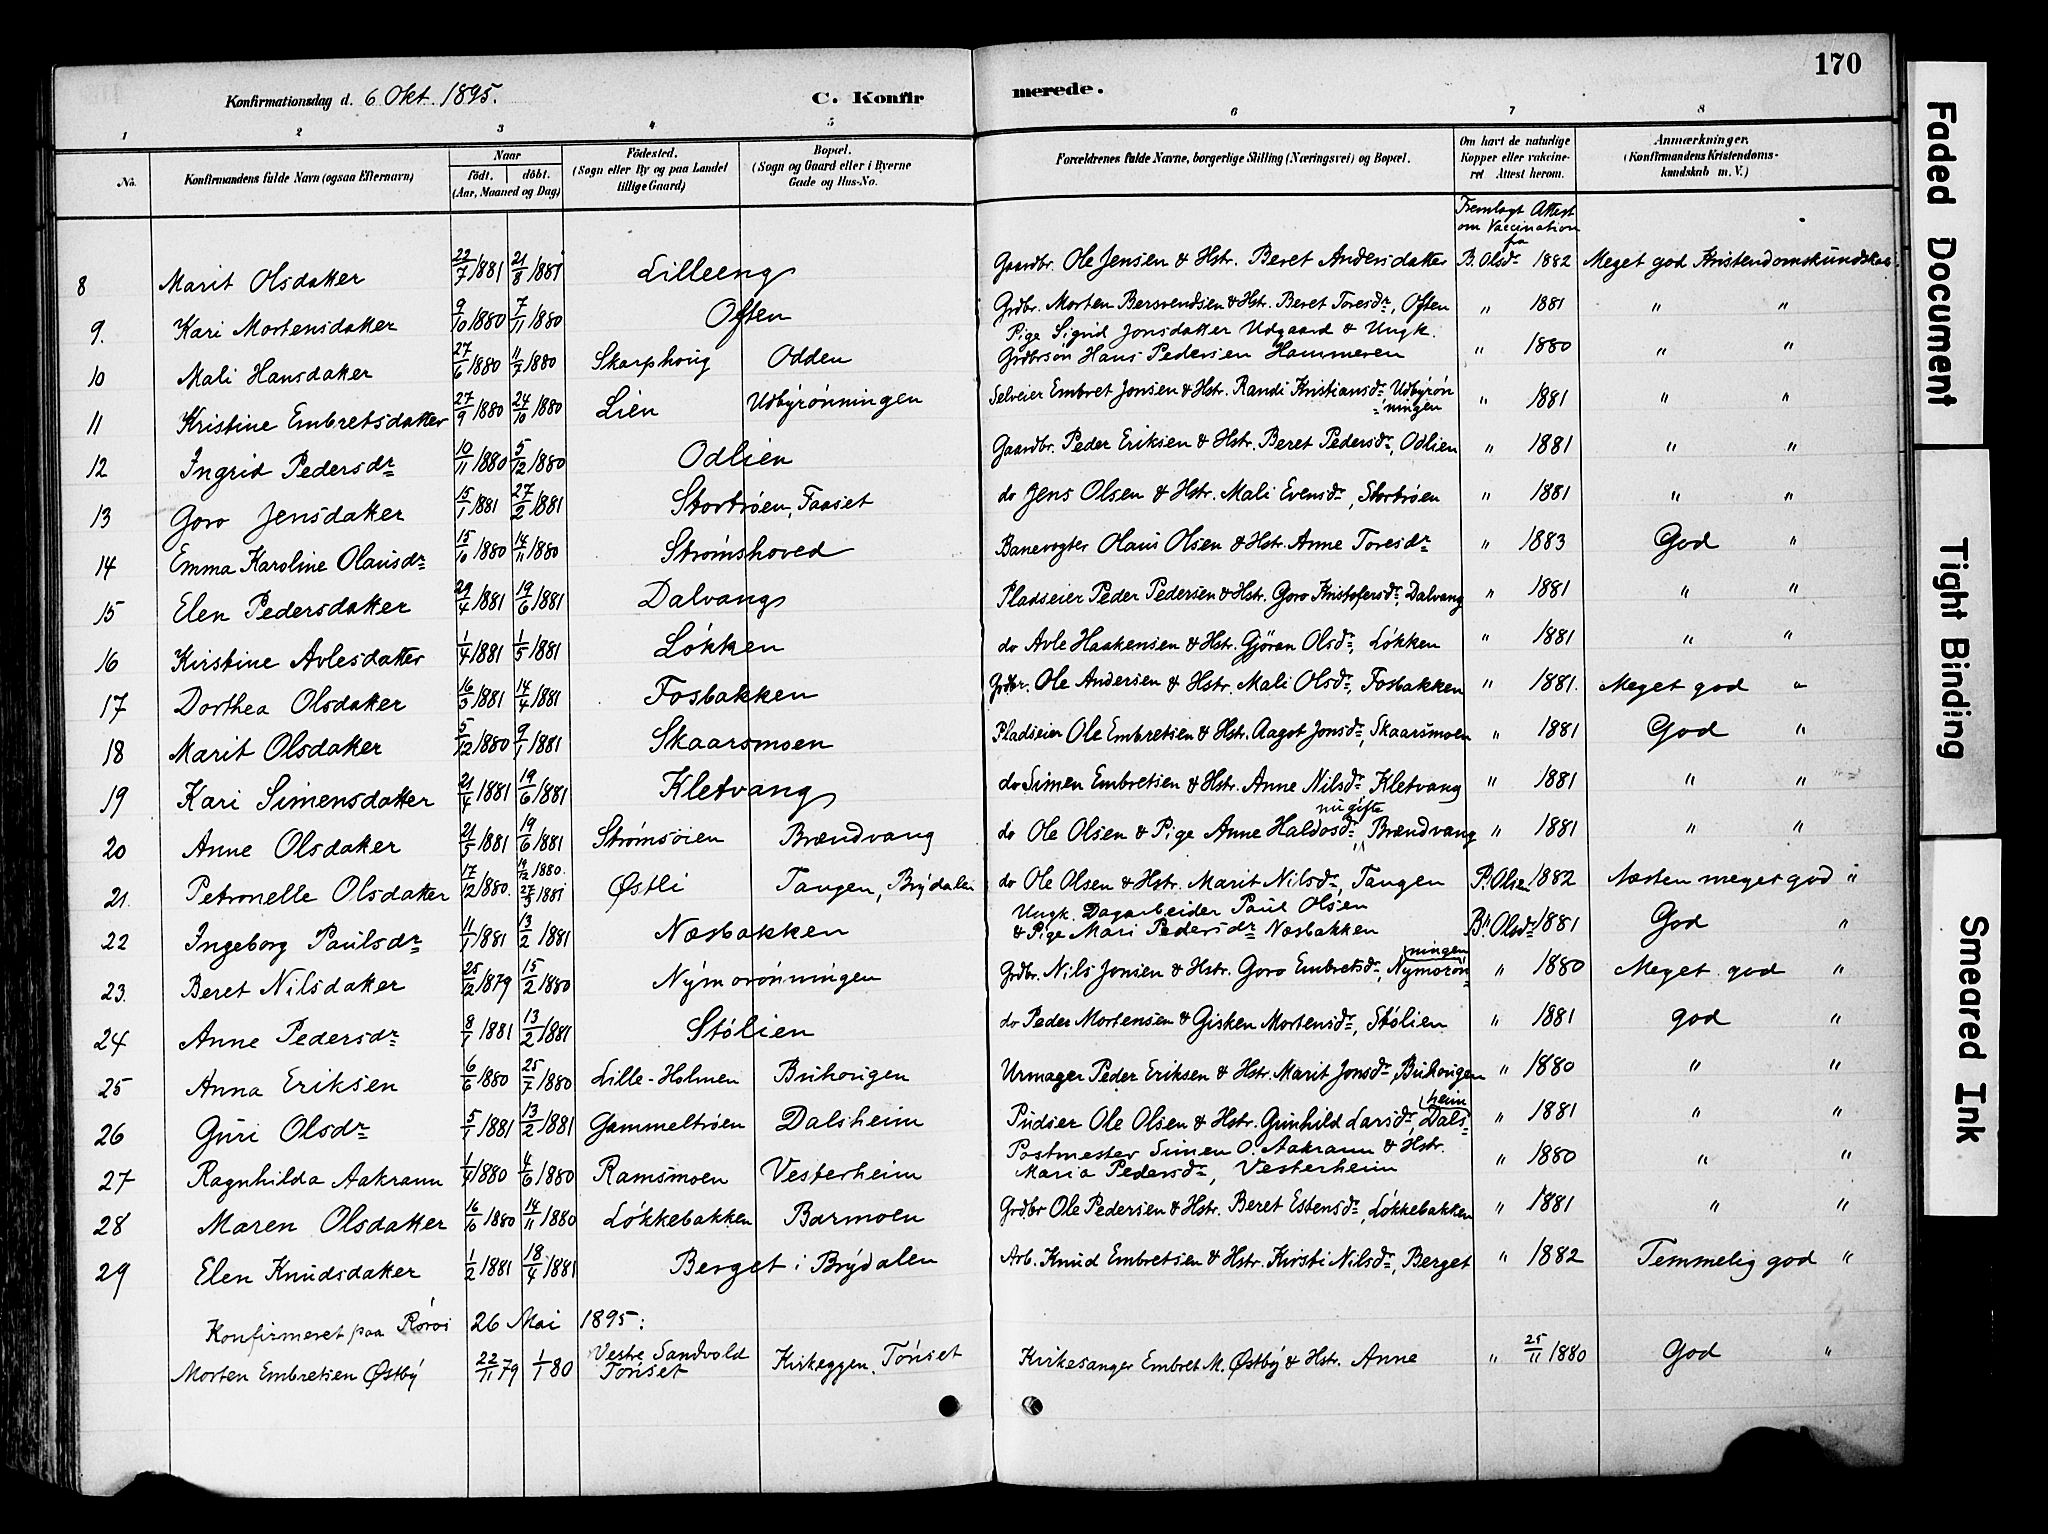 170
Konfirmationsdag d. 6. Okt. 1895.
C. Konfirmerede.
1 2 3 4 5 6 7 8
No.
Konfirmandens fulde Navn (ogsaa Efternavn)
Naar
födt. döbt.
(Aar, Maaned og Dag)
Födested.
(Sogn eller By og paa Landet
tillige Gaard)
Bopæl.
(Sogn og Gaard eller i Byerne
Gade og Hus-No.
Forældrenes fulde Navne, borgerlige Stilling (Næringsvei) og Bopæl.
Om havt de naturlige
Kopper eller vaccine-
ret Attest herom.
Anmærkninger.
(Konfirmandens Kristendoms-
kundskab m. V.)
Fremlagt Attest
om Vaccination
fra
8 Marit Olsdatter 22/7 1881 21/8 1881 Lilleeng Gaardbr. Ole Jensen & Hstr. Beret Andersdatter B. Olsdr 1882 Meget god Kristendomskundskab
9. Kari Mortensdatter 9/10 1880 7/11 1880 Often Grdbr. Morten Bersvendsen & Hstr. Beret Toresdr, Often " 1881 " "
10 Mali Hansdatter 27/6 1880 11/7 1880 Skarphoug Odden Pige Sigrid Jonsdatter Udgaard & Ungk.
Grdbrsøn Hans Pedersen Hammeren " 1880 " "
11 Kristine Embretsdatter 27/9 1880 24/10 1880 Lien Udbyrønningen Selveier Embret Jonsen & Hstr. Randi Kristiansdr, Udbyrøn
ningen " 1881 " "
12 Ingrid Pedersdr 10/11 1880 5/12 1880 Odlien Gaardbr. Peder Eriksen & Hstr. Beret Pedersdr, Odlien " 1881 " "
13 Goro Jensdatter 15/1 1881 27/2 1881 Stortrøen, Faaset do Jens Olsen & Hstr. Mali Evensdr, Stortrøen " 1881 " "
14 Emma Karoline Olausdr 15/10 1880 14/11 1880 Strømshoved Banevogter Olaus Olsen & Hstr. Anne Toresdr " 1883 God "
15 Elen Pedersdatter 29/4 1881 19/6 1881 Dalvang Pladseier Peder Pedersen & Hstr. Goro Kristofersdr, Dalvang " 1881 " "
16 Kirstine Avlesdatter 1/4 1881 1/5 1881 Løkken do Avle Haakensen & Hstr. Gjöran Olsdr, Løkken " 1881 " "
17 Dorthea Olsdatter 16/3 1881 14/4 1881 Fosbakken Grdbr. Ole Andersen & Hstr. Mali Olsdr, Fosbakken " 1881. Meget god "
18 Marit Olsdatter 5/12 1880 9/1 1881 Skaarsmoen Pladseier Ole Embretsen & Hstr. Aagot Jonsdr, Skaarsmoen " 1881 God "
19 Kari Simensdatter 21/4 1881 19/6 1881 Kletvang do Simen Embretsen & Hstr. Anne Nilsdr Kletvang " 1881 " "
20 Anne Olsdatter 21/3 1881 19/6 1881 Strømsøien Brændvang do Ole Olsen & Pige Anne Haldosdr, nu gifte Brændvang " 1881 " "
21. Petronelle Olsdatter 17/12 1880. 19/12 1880. 27/3 1881 Østli Tangen, Brydalen do Ole Olsen & Hstr. Marit Nilsdr, Tangen P. Olsen 1882 Næsten meget god "
22 Ingeborg Paulsdr 11/1 1881 13/2 1881 Næsbakken Ungk. Dagarbeider Paul Olsen
& Pige Mari Pedersdr Næsbakken B. Olsdr 1881 God "
23. Beret Nilsdatter 25/12 1879 15/2 1880 Nymorønningen Grdbr. Nils Jonsen & Hstr. Goro Embretsdr, Nymorøn
ningen " 1880 Meget god "
24 Anne Pedersdr 8/1 1881 13/2 1881 Stølien do Peder Mortensen & Gisken Mortensdr, Stølien " 1881 god "
25 Anna Eriksen 6/6 1880 25/7 1880 Lille-Holmen Buhougen Urmager Peder Eriksen & Hstr. Marit Jonsdr, Buhougen " 1880 " "
26 Guri Olsdr 5/1 1881 13/2 1881 Gammeltrøen Dalsheim Ole Olsen & Hstr. Gunhild Larsdr, Dals
heim " 1881 " "
27 Ragnhilda Aakrann 1/4 1880 4/6 1880 Ramsmoen Vesterheim Postmester Simen O. Aakrann & Hstr.
Maria Pedersdr, Vesterheim " 1880 " "
28 Maren Olsdatter 16/10 1880 14/11 1880 Løkkebakken Barmoen Grdbr Ole Pedersen & Hstr. Beret Estensdr, Løkkebakken " 1881 " "
29 Elen Knudsdatter 1/2 1881 18/4 1881 Berget i Brydalen Arb. Knud Embretsen & Hstr. Kirsti Nilsdr, Berget " 1882 Temmelig god "
Konfirmeret paa Røros 26 Mai 1895:
Morten Embretsen Østby 22/11 79 1/1 80 Vestre Sandvold
Tönset Kirkeggen, Tönset Kirkesanger Embret M. Østby & Hstr. Anne " 25/11 1880 God "
Faded Document
Tight Binding
Smeared Ink